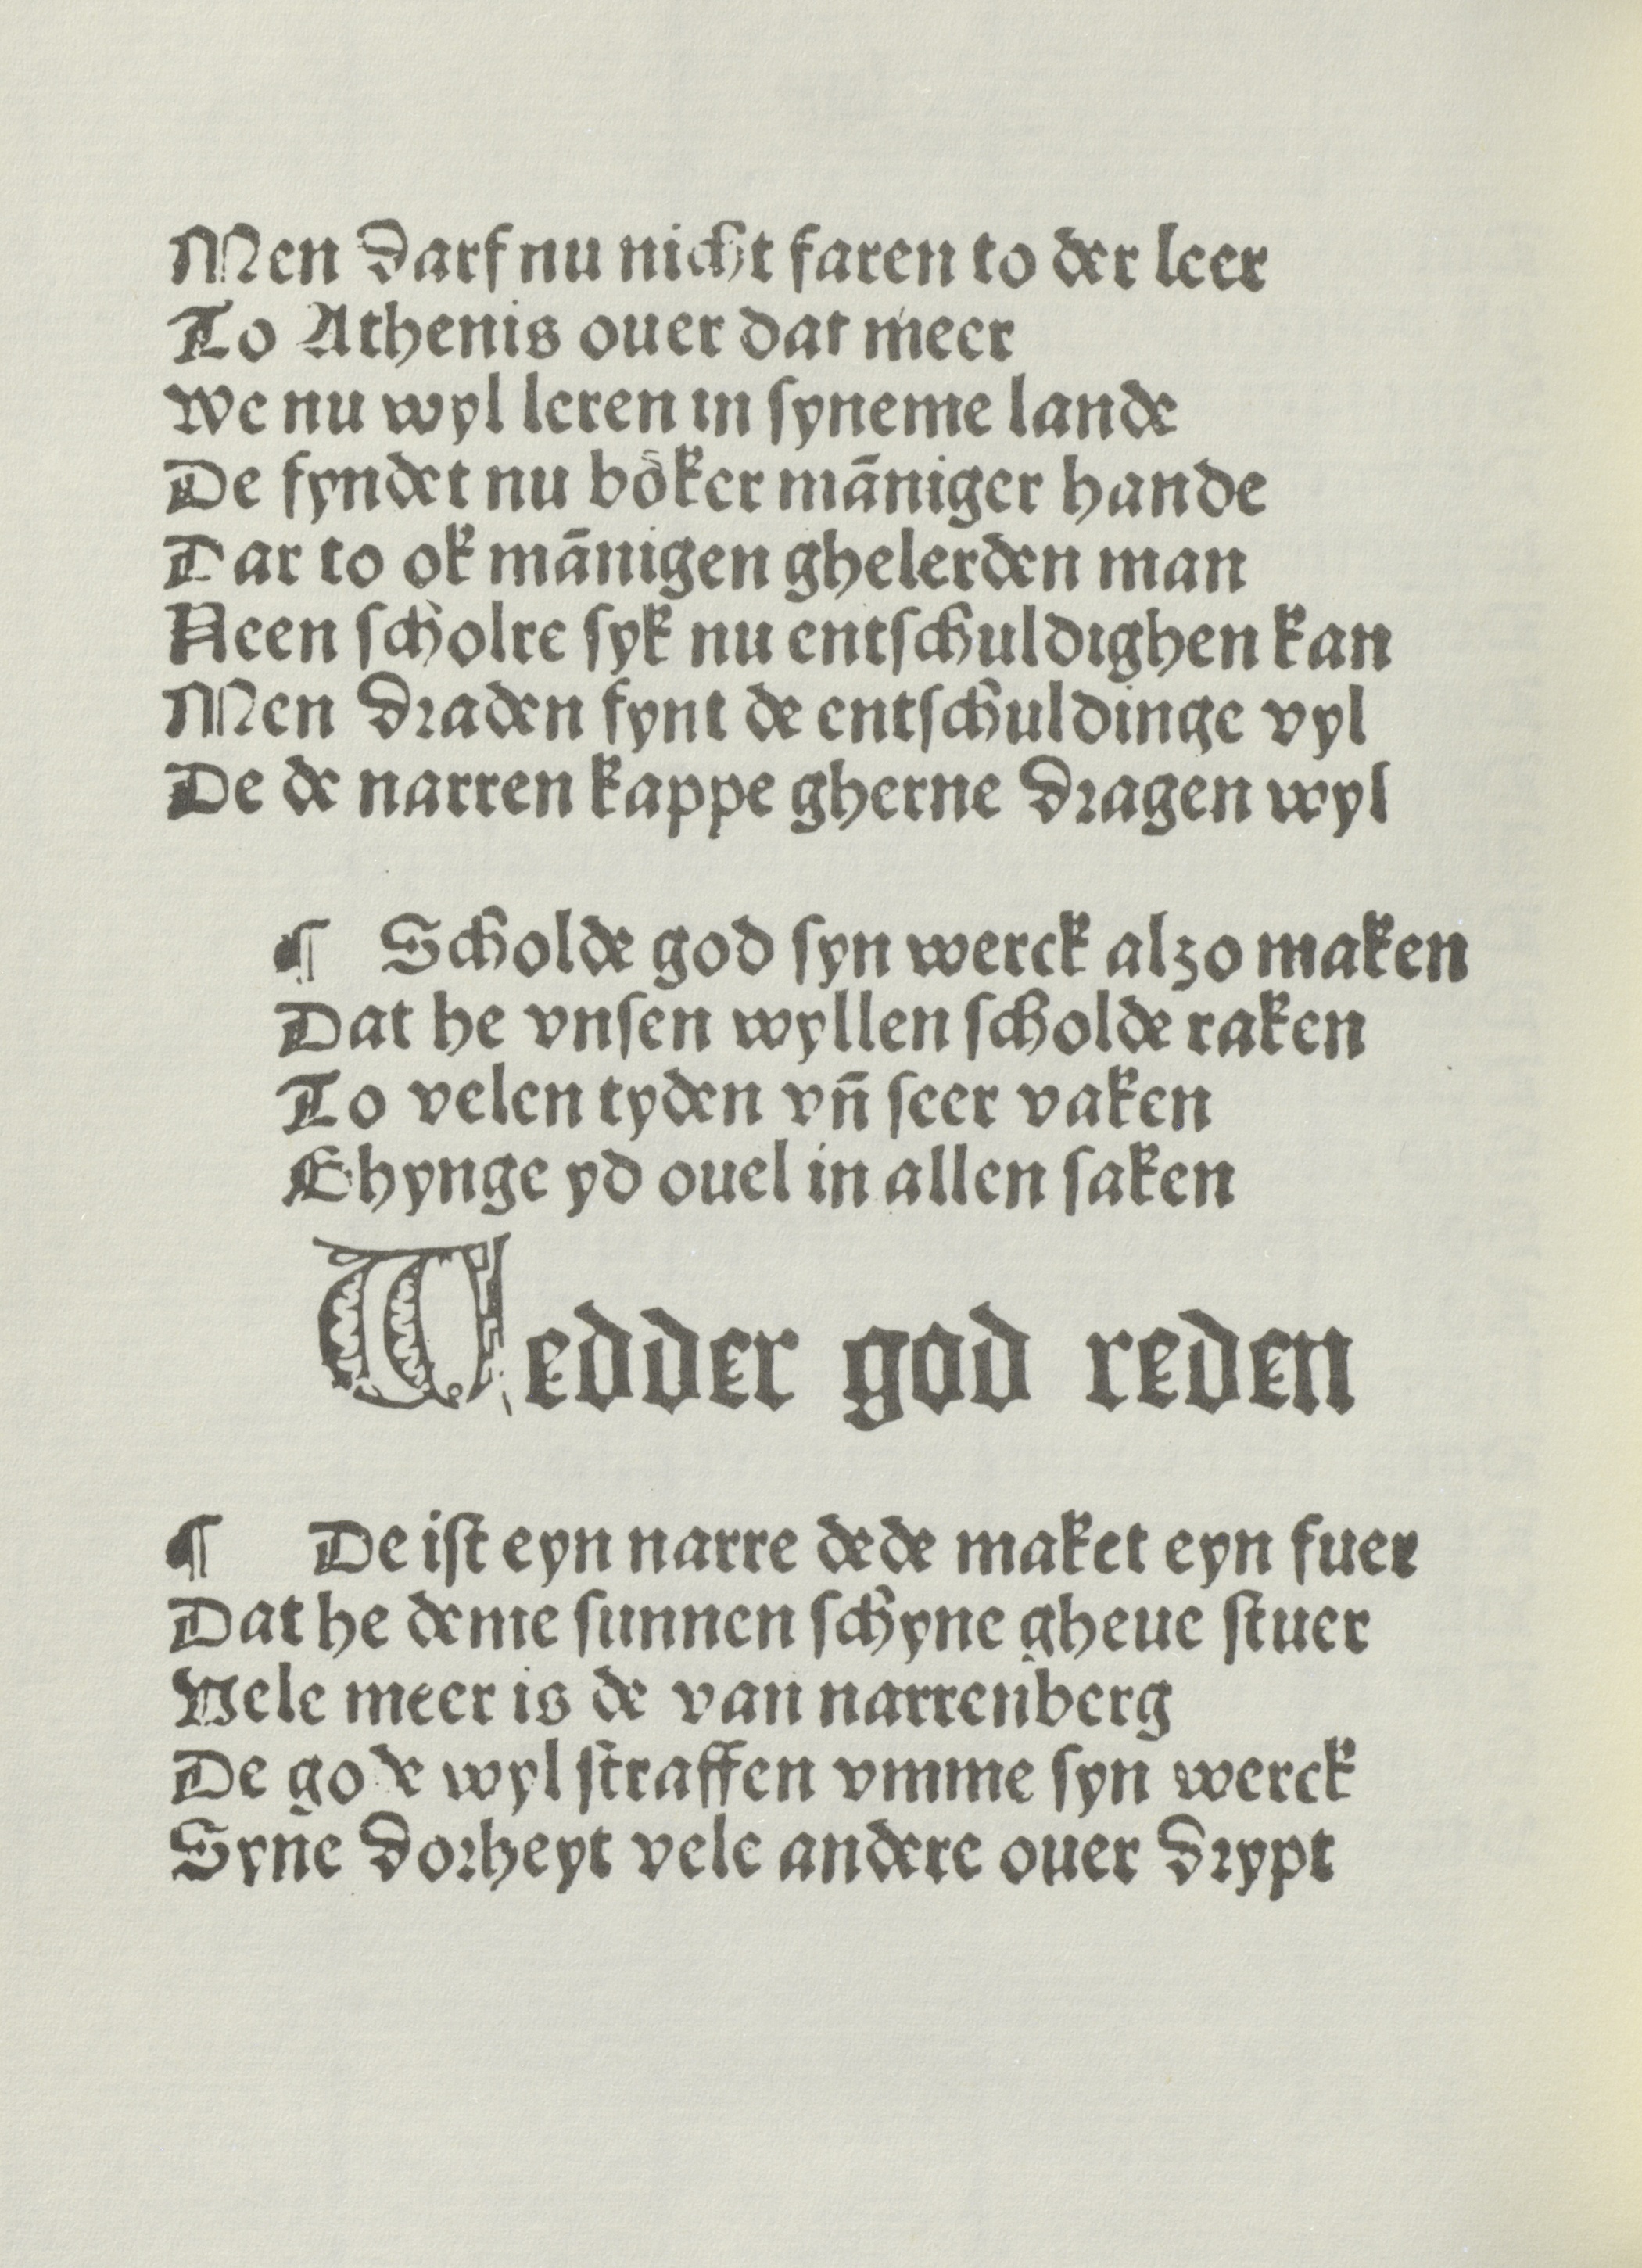 Men darf nu nicht faren to der leer
To Athenis ouer dat meer
We nu wyl leren in ſyneme lande
De fyndet nu boͤker māniger hande
Dar to ok mānigen ghelerden man
Neen ſcholre ſyk nu entſchuldighen kan
Men draden fynt de entſchuldinge vyl
De de narren kappe gherne dragen wyl
¶ Scholde god ſyn werck alzo maken
Dat he vnſen wyllen ſcholde raken
To velen tyden vn̄ ſeer vaken
Ghynge yd ouel in allen ſaken
Wedder god reden
¶ De iſt eyn narre dede maket eyn fuer
Dat he deme ſunnen ſchyne gheue ſtuer
Vele meer is de van narrenberg
De gode wyl ſtraffen vmme ſyn werck
Syne dorheyt vele andere ouer drypt